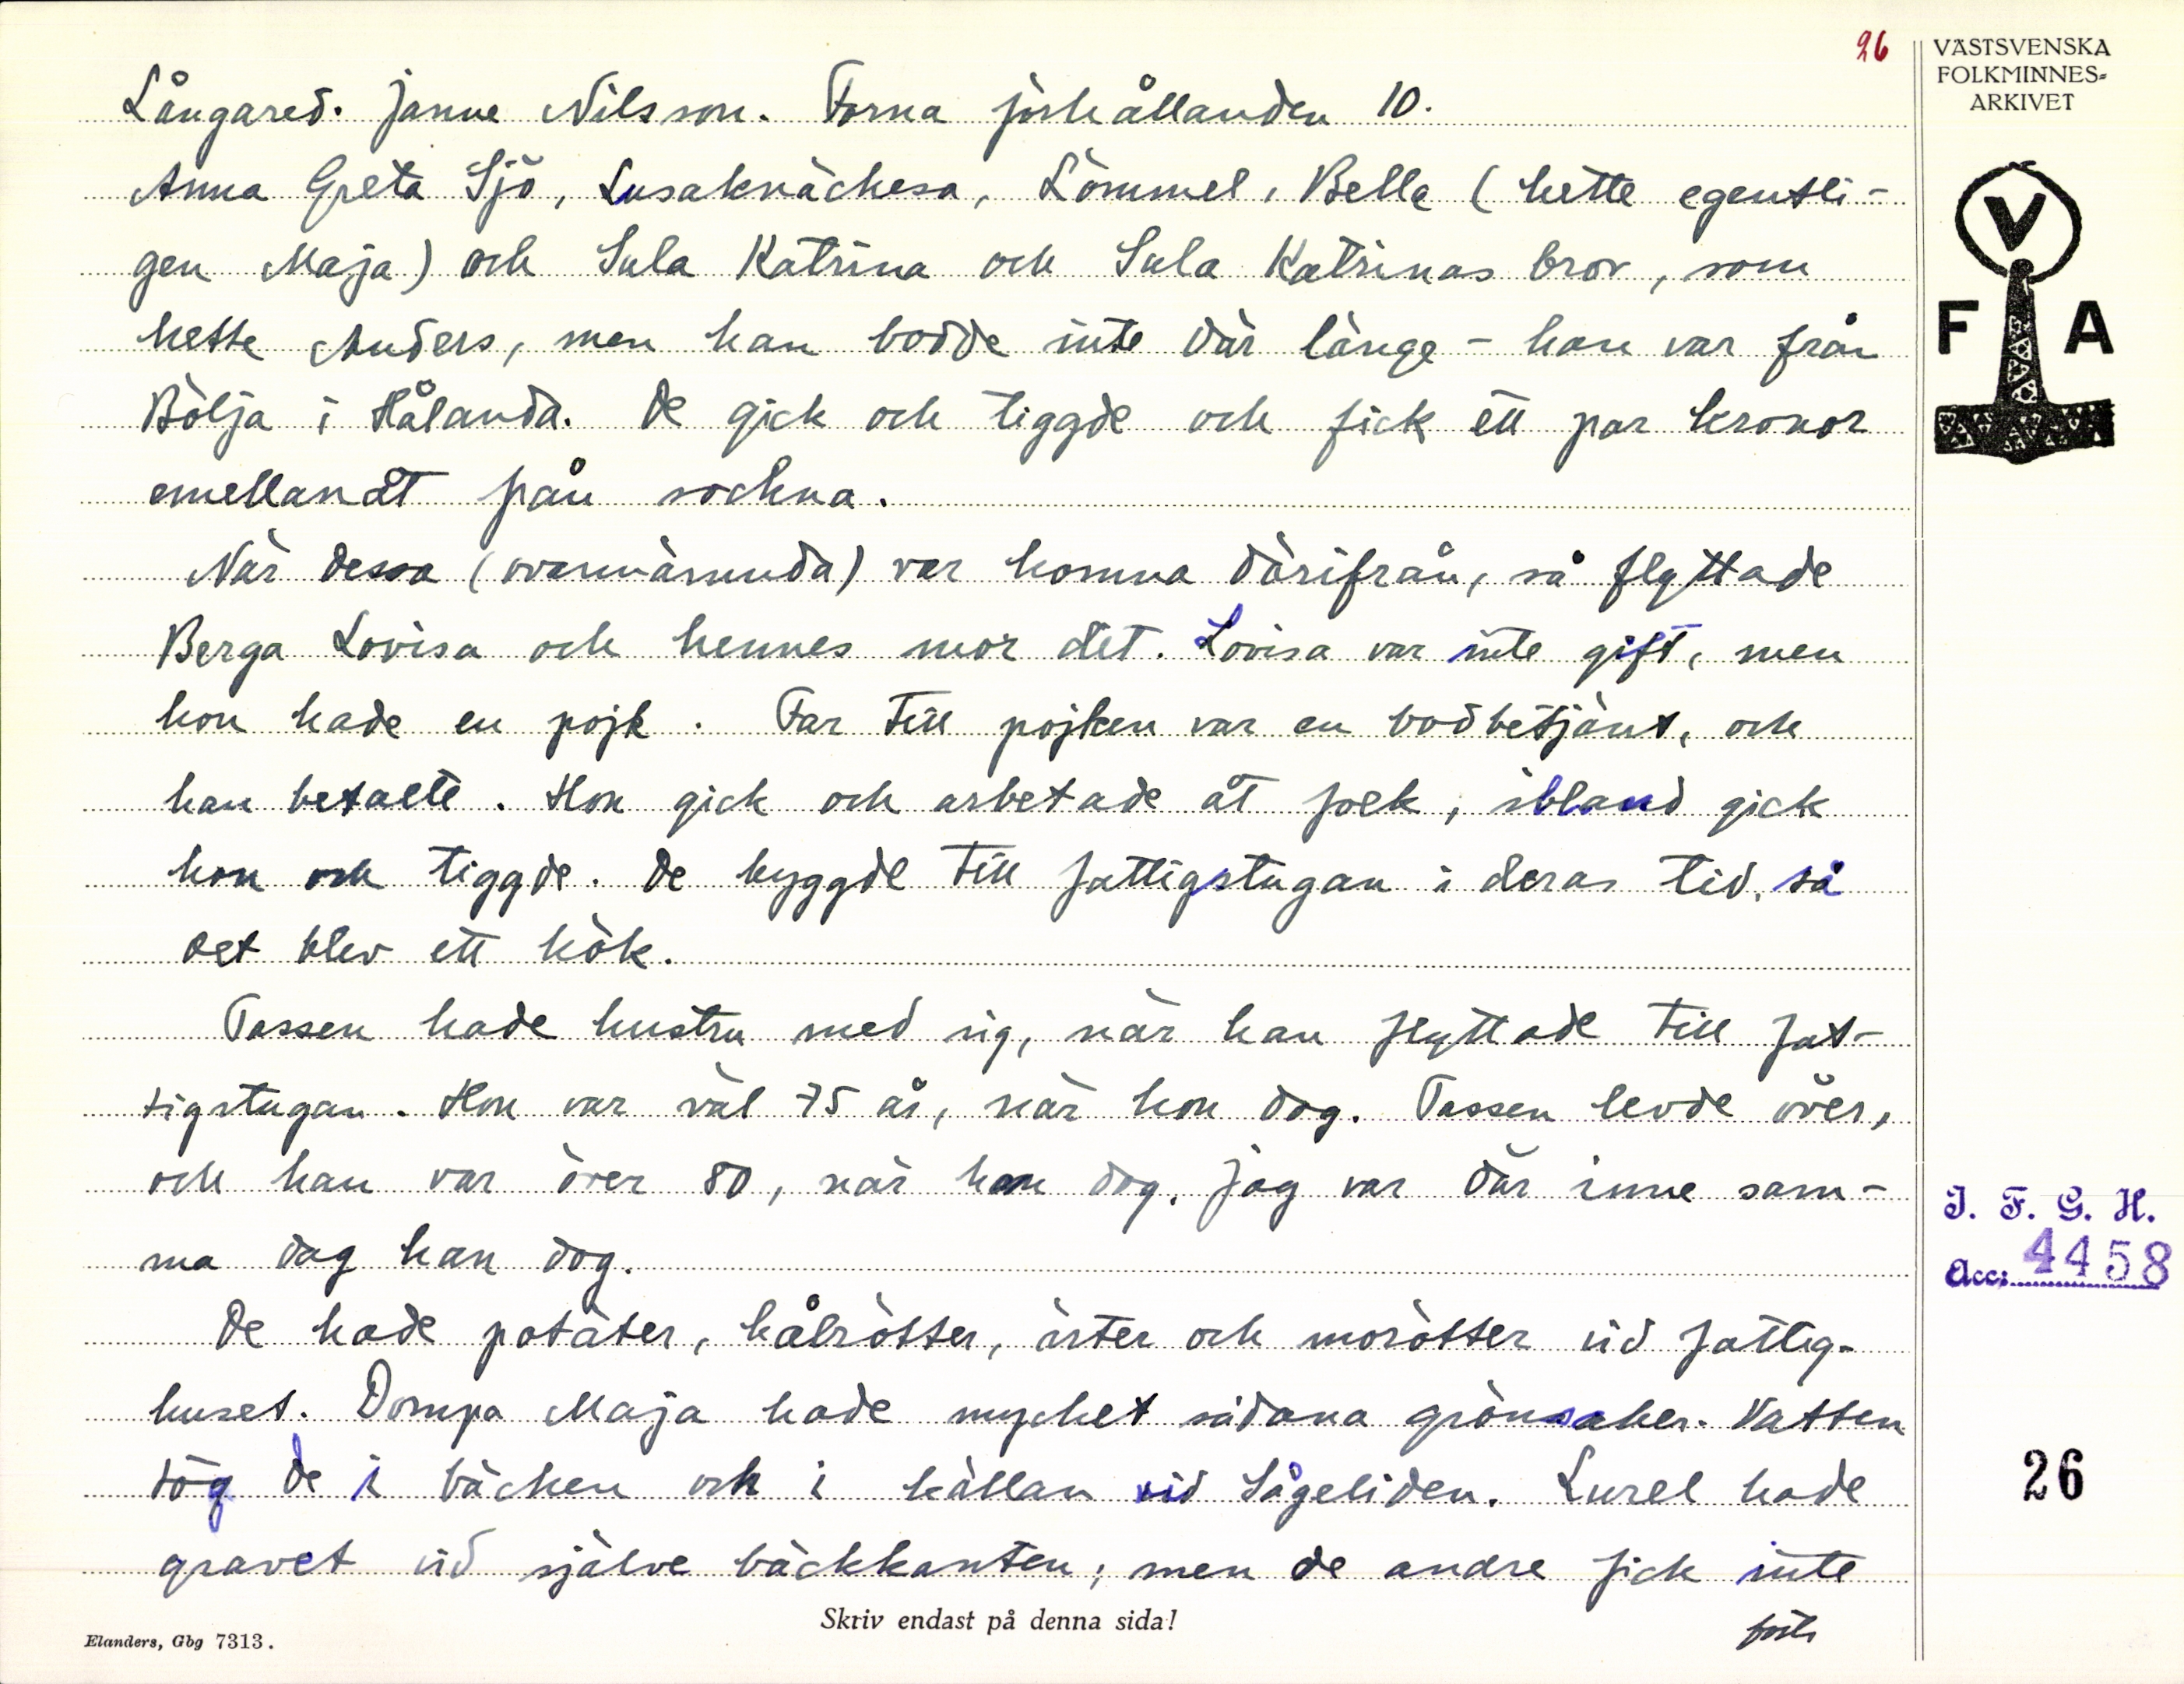 26
VÄSTSVENSKA
FOLKMINNES=
ARKIVET
Långared. Janne Nilsson. Forna förhållanden 10.
Anna Greta Sjö, Lusaknäckesa, Lömmel, Bella (hette egentli-
gen Maja) och Sula Katrina och Sula Katrinas bror, som
hette Anders, men han bodde inte där länge - han var från
Bölja i Hålanda. De gick och tiggde och fick ett par kronor
emellanåt från sockna.
När dessa (ovannämnda) var komna därifrån, så flyttade
Berga Lovisa och hennes mor dit. Lovisa var inte gift, men
hon hade en pojk. Far till pojken var en bodbetjänt, och
han betalte. Hon gick och arbetade åt folk, ibland gick
hon och tiggde. De byggde till fattigstugan i deras tid, så
det blev ett kök.
Tassen hade hustru med sig, när han flyttade till fat-
tigstugan. Hon var väl 75 år, när hon dog. Tassen levde över,
och han var över 80, när han dog. Jag var där inne sam-
ma dag han dog.
De hade potäter, kålrötter, ärter och morötter vid fattig-
huset. Dompa Maja hade mycket sådana grönsaker. Vatten
tog de i bäcken och i källan vid Sågeliden. Lurel hade
gravet vid själve bäckkanten; men de andre fick inte
forts
V
F A
I. F. G. H.
Acc: 4458
26
Skriv endast på denna sida!
Elanders, Gbg 7313.